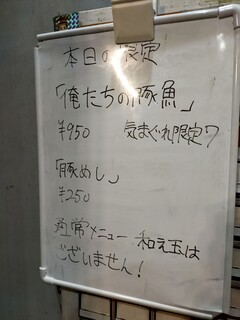 本日の限定
「俺たちの豚魚」
¥950 気まぐれ限定7
「豚めし」
¥250
通常メニュー 和え玉は
ございません!